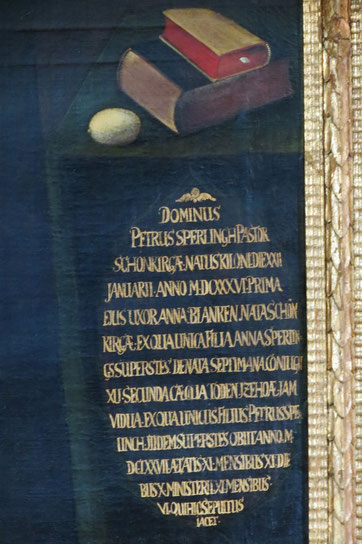 DOMINUS
PETRUS SPERLINGH PASTOR
SCHONKIRCÆ NATUS KILONI DIE XXII
JANUARII ANNO M.DCXXXVI. PRIMA
EIUS UXOR ANNA BLANKEN. NATA SCHÖN
KIRCÆ. EX QUA UNICA FILIA ANNA SPERLIN
SUPERSTES DENATA SEPTIMANA
SECUNDA
VIDUA. EX QUA UNICUS FILIUS PETRUS SPE
SUPERSTES OBIIT ANNO. M
DCLXXVII. ÆTATIS XL. MENSIBUS XI. DIE
BUS X. MINISTERII MENSIBUS
VI. QUI HIC SEPULTUS
IACET